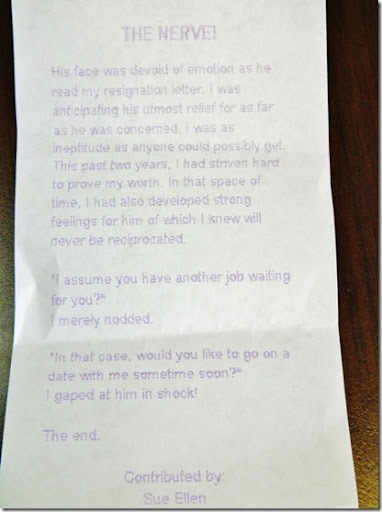 THE NERVE!
His face was devoid of emotion as he
read my resignation letter. I was
anticipating his utmost relief for as far
as he was concerned, I was as
ineptitude as anyone could possibly get.
This past two years, I had striven hard
to prove my worth. In that space of
time, I had also developed strong
feelings for him of which I knew will
never be reciprocated.
"I assume you have another job waiting
for you?"
I merely nodded.
"In that case, would you like to go on a
date with me sometime soon?"
I gaped at him in shock!
The end.
Contributed by:
Sue Ellen